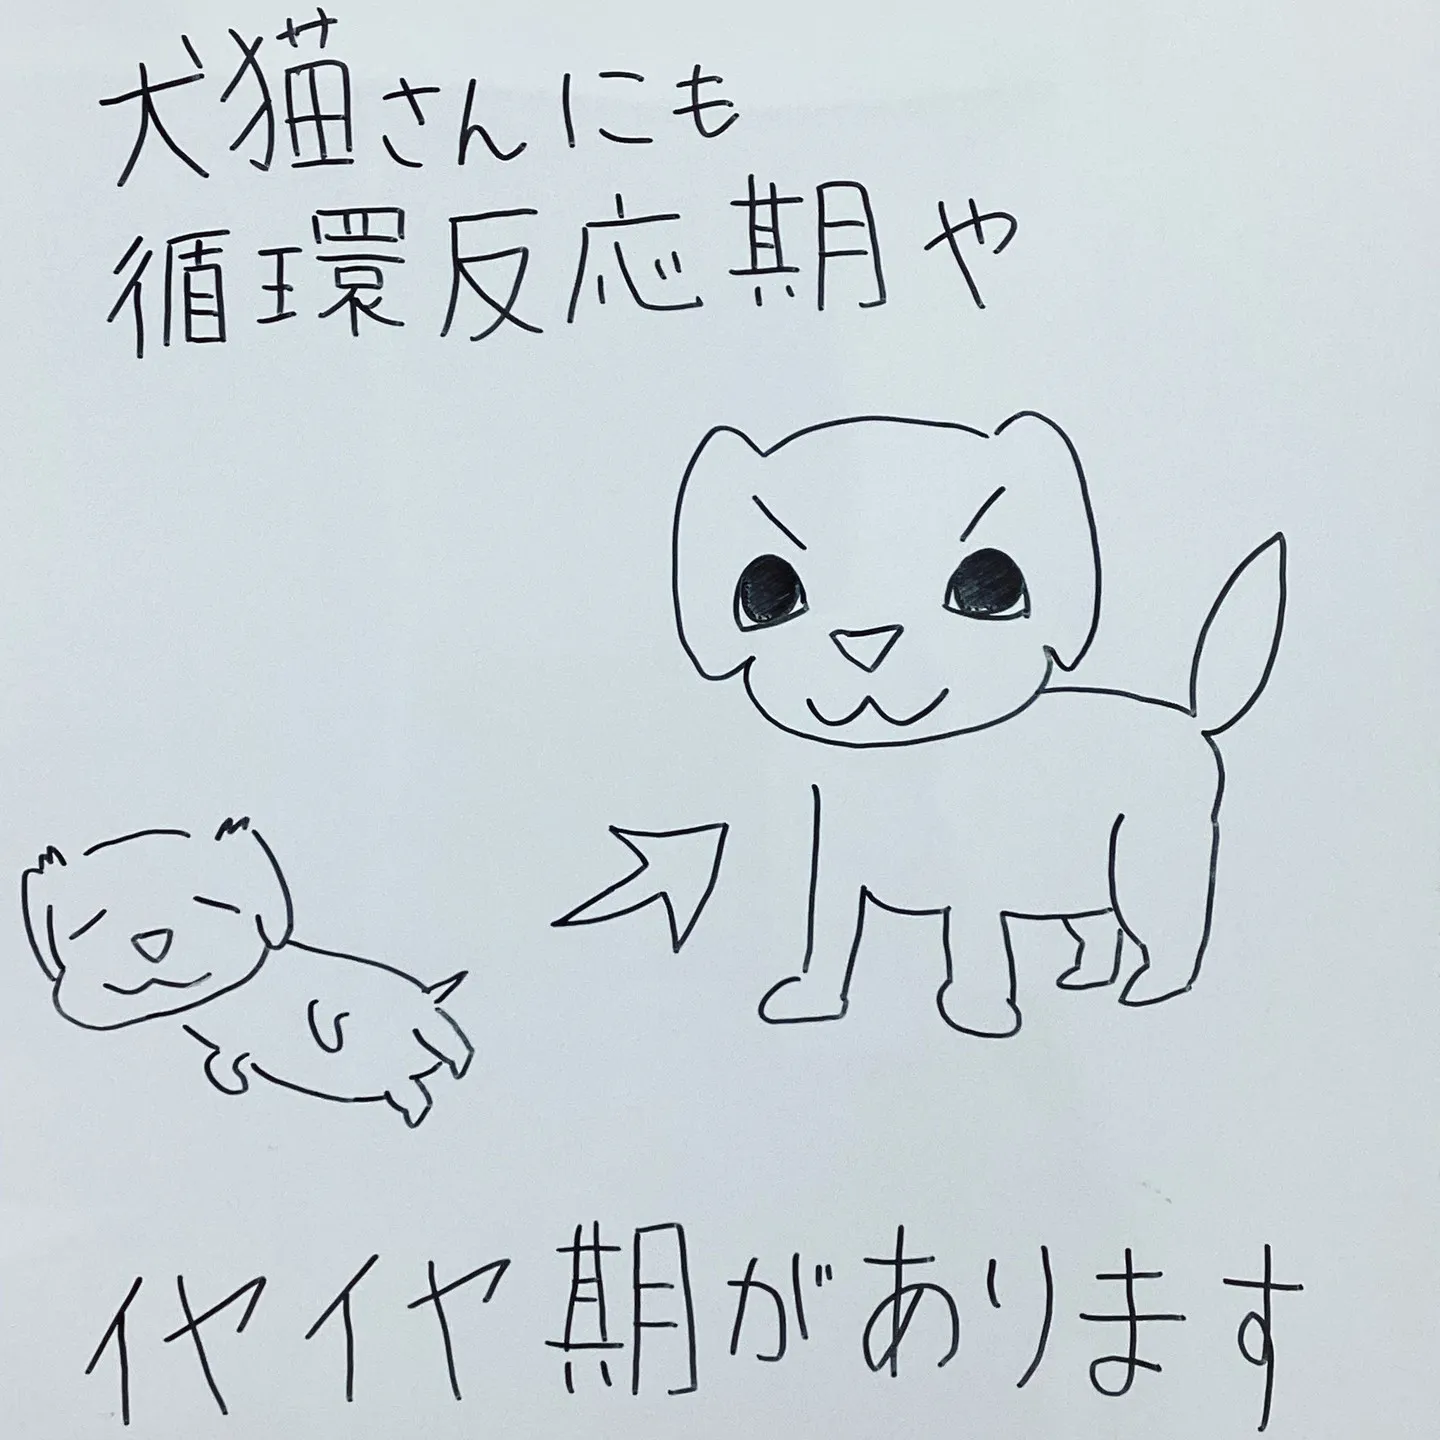 犬猫さんにも
循環反応期や
イヤイヤ期があります